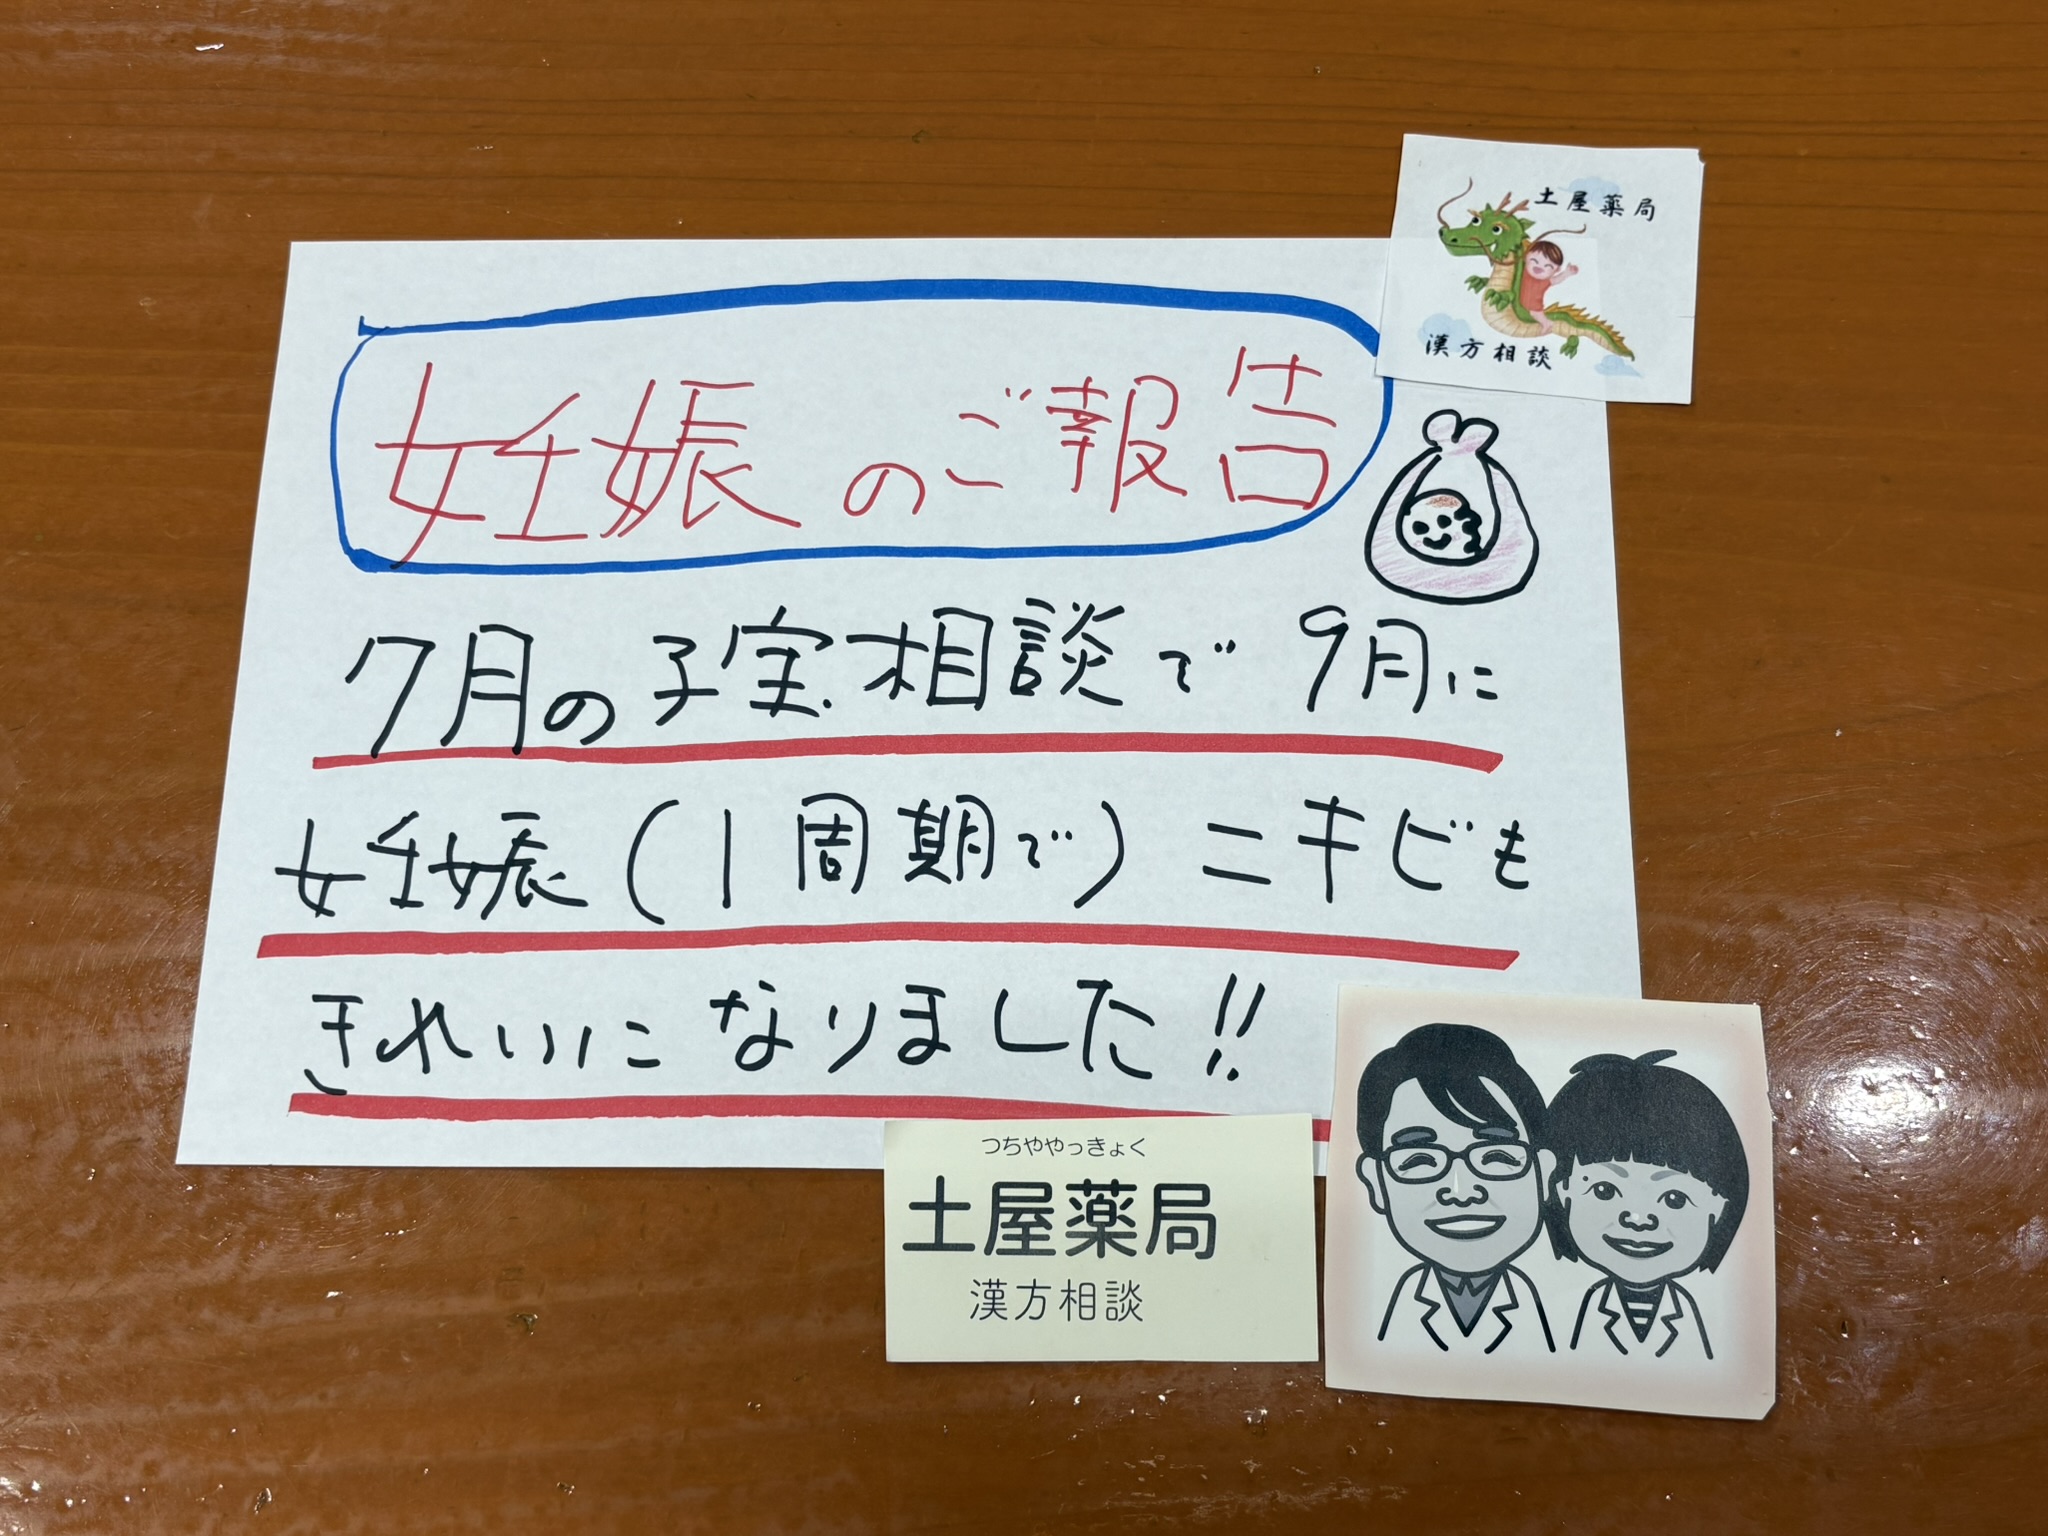 土屋薬局
漢方相談
妊娠のご報告
7月の子宝相談で9月に
妊娠(1周期で)ニキビも
きれいになりました!!
つちややっきょく
土屋薬局
漢方相談